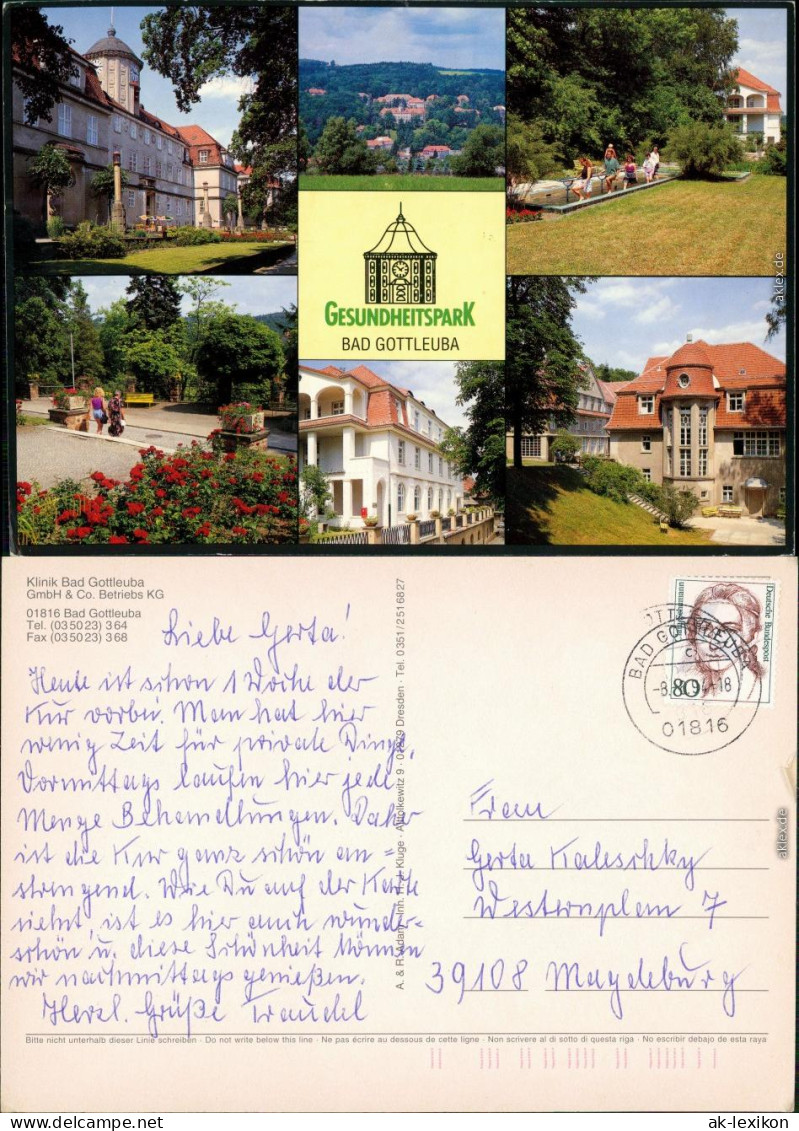 GESUNDHEITSPARK
BAD GOTTLEUBA
aklex.de
Klinik Bad Gottleuba
GmbH & Co. Betriebs KG
01816 Bad Gottleuba
Tel. (035023) 364
Fax (035023) 368
Liebe Gerta!
Heute ist schon 1 Woche der
Kur vorbei. Man hat hier
wenig Zeit für private Dinge,
Vormittags laufen hier jede
Menge Behandlungen. Daher
ist die Kur ganz schön an=
strengend. Wie Du auf der Karte
siehst, ist es hier auch wunder-
schön u. diese Schönheit können
wir nachmittags genießen.
Herzl. Grüße Traudel
A. & R. Adam · Inh. H. J. Kluge · Altolkewitz 9 · Dresden · Tel. 0351/2516827
Deutsche Bundespost
80
BAD GOTTLEUBA
01816
Frau
Gerta Kaleschky
Westernplan 7
39108 Magdeburg
aklex.de
Bitte nicht unterhalb dieser Linie schreiben · Do not write below this line · Ne pas écrire au dessous de cette ligne · Non scrivere al di sotto di questa riga · No escribir debajo de esta raya
www.ak-ansichtskarten.de
ak-lexikon